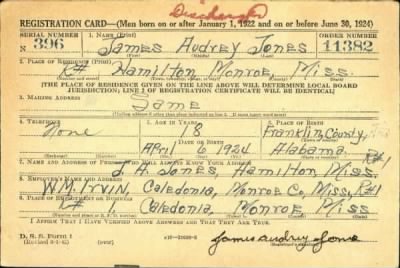 Discharged
REGISTRATION CARD—(Men born on or after January 1, 1922 and on or before June 30, 1924)
SERIAL NUMBER 1. NAME (Print) ORDER NUMBER
N 396 James Audrey Jones 11382
2. PLACE OF RESIDENCE (Print)
R#1 Hamilton Monroe Miss.
[THE PLACE OF RESIDENCE GIVEN ON THE LINE ABOVE WILL DETERMINE LOCAL BOARD
JURISDICTION; LINE 2 OF REGISTRATION CERTIFICATE WILL BE IDENTICAL]
3. MAILING ADDRESS
Same
4. TELEPHONE 5. AGE IN YEARS 6. PLACE OF BIRTH
None 18 Franklin County,
DATE OF BIRTH
April 6 1924 Alabama
7. NAME AND ADDRESS OF PERSON WHO WILL ALWAYS KNOW YOUR ADDRESS R#1
J. H. Jones, Hamilton Miss,
8. EMPLOYER'S NAME AND ADDRESS
W.M. Irvin, Caledonia, Monroe Co, Miss, R#1
9. PLACE OF EMPLOYMENT OR BUSINESS
R# 1, Caledonia, Monroe Miss
I AFFIRM THAT I HAVE VERIFIED ABOVE ANSWERS AND THAT THEY ARE TRUE.
D. S. S. Form 1
James Audrey Jones